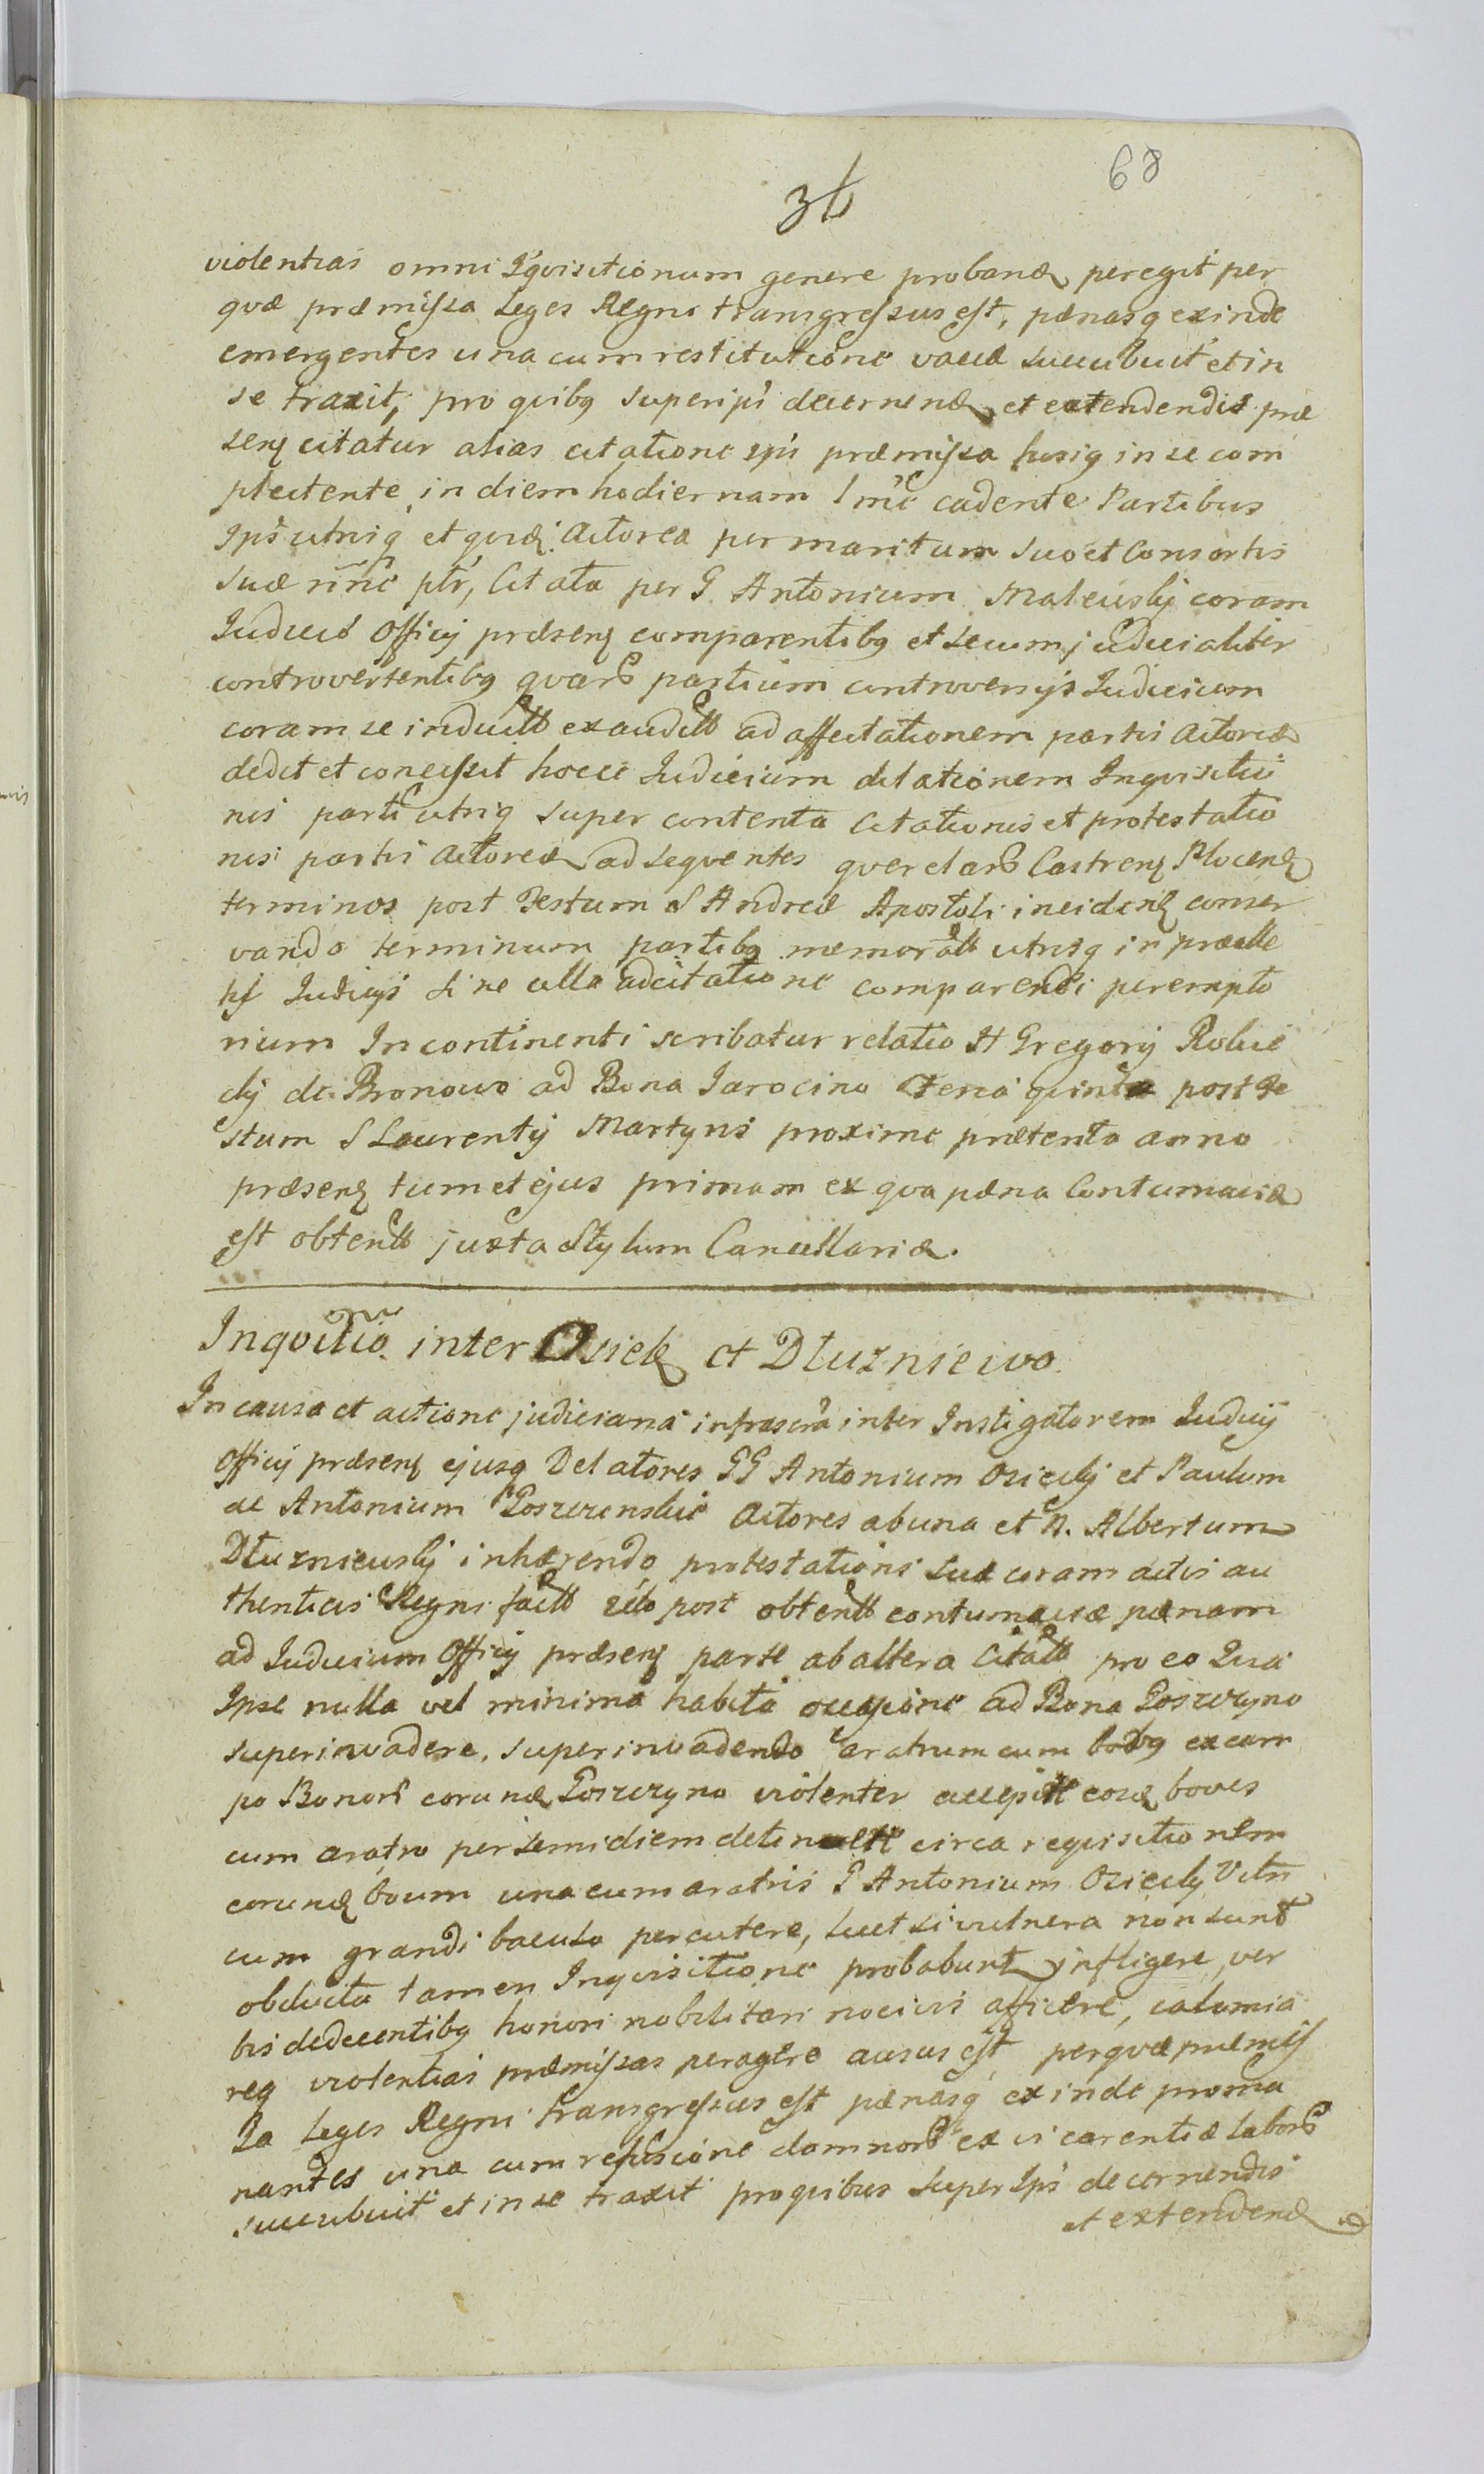 68
36
violentias omni Iquisitionum genere proband peregit per
qvæ præmissa Leges Regni transgressus est, pænasq exinde
emergentes una cum restitutione vaccæ succubuit et in
se traxit, pro quibq super ipś decernend et extendendis præ
senq citatur alias citatione ipś præmissa husiq in se com
plectente in diem hodiernam cadente Partibus
Ipś utrisq et quid. Actorea per maritum suo et Consortis
suæ nnē ptr, Citata per G Antonium Mateuskij coram
Judicio Officij præsenq comparentibq et secum judicialiter
controvertentibq qvarũ partium controversijs Judicium
coram se inductt exauditt ad affectationem partis Actoreæ
dedit et concessit hocce Judicium dilationem Inqvisitio
nis parti utriq super contenta Citationis et protestatio
nis partis Actoreæ ad seqventes qverelarũ Castrenq Plocenq
terminos post Festum S Andreæ Apostoli incidenq conser
vando terminum partibq memoratt utrisq in præalle
tis Judicijs sine ulla adcitatione comparendi perempto
rium Incontinenti scribatur relatio H Gregorij Rolwie
ckij de Bronowo ad Bona Jarocino Feria quinta post Fe
stum S Laurentij Martyris proxime prætento anno
præsenq tum et ejus primam ex qva pæna Contumaciæ
est obtentt juxta Stylum Cancellariæ.
Inqvitio. inter Osiek et Dłuzniewo
In causa et actione judiciaria infrascra inter Instigatorem Judicij
Officij præsenq ejusq Delatores GG Antonium Osieckij et Paulum
ac Antonium Goszczenskie Actores ab una et N. Albertum
Dłuzniewskij inhærendo protestationi suæ coram actis au
thenticis Regni factt post obtentt contumaciæ pænam
ad Judicium Officij præsenq parte ab altera Citatt pro eo Quia
Ipse nulla vel minima habita occasione ad Bona Goszczyno
superinvadere, superinvadendo aratrum cum bobq ex cam
po Bonorũ eorund Goszczyno violenter accepitt eosq boves
cum aratro per semidiem detinuitt circa reqvisitionem
eorund boum una cum aratris G Antonium Osieckij
cum grandi baculo percutere, licet si vulnera non sunt
obducta tamen Inqvisitione probabunt infligere, ver
bis dedecentibq honori nobilitari nocivis afficere, calumia
req violentias præmissas peragere ausus est, perqvæ præmis
sa Leges Regni transgressus est pænasq exinde proma
nantes una cum refusione damnorũ ex vi carentiæ laborũ
succubuit et in se traxit pro quibus super Ipś decernendis
et extendend